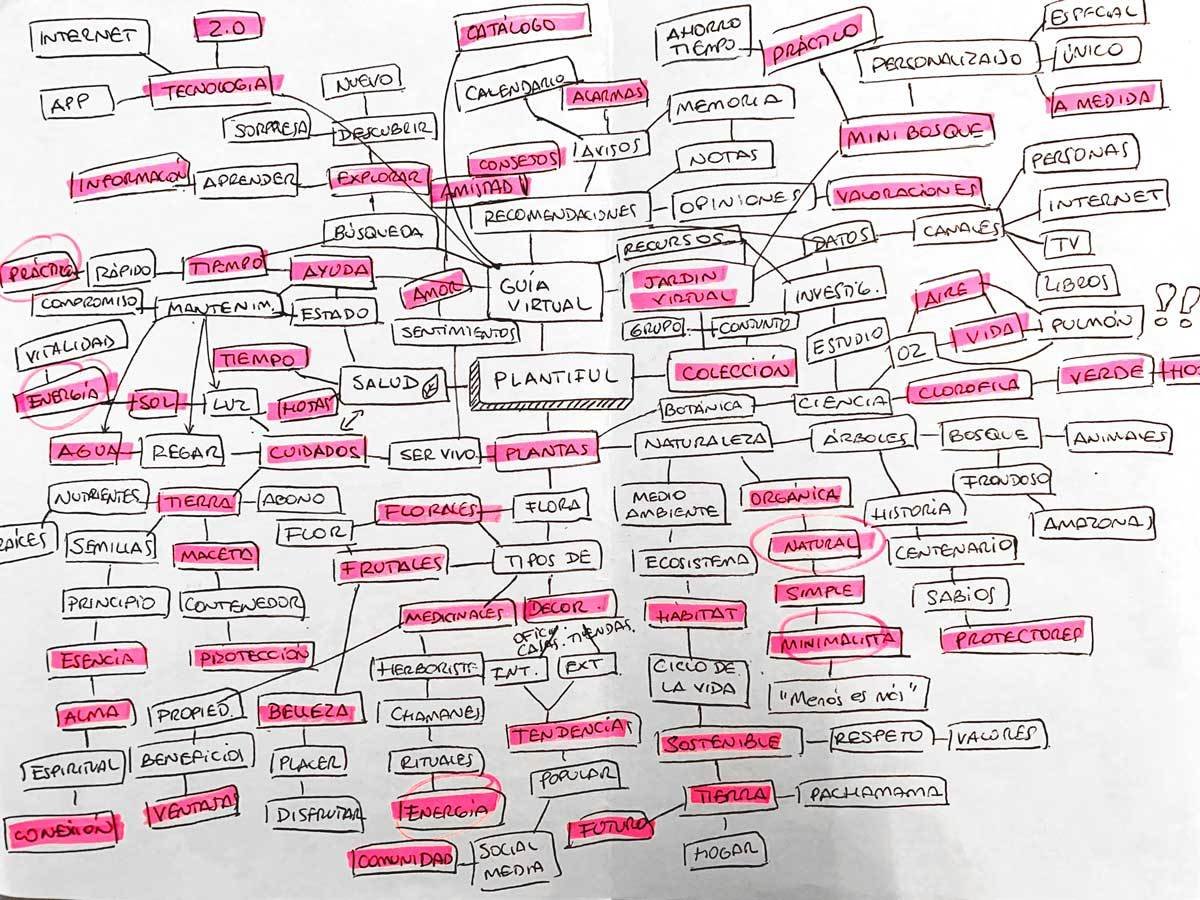 INTERNET
2.0
CATÁLOGO
AHORRO
TIEMPO
PRÁCTICO
ESPECIAL
PERSONALIZADO
ÚNICO
APP
TECNOLOGIA
NUEVO
CALENDARIO
ALARMAS
MEMORIA
A MEDIDA
SORPRESA
DESCUBRIR
AVISOS
MINI BOSQUE
NOTAS
PERSONAS
INFORMACIÓN
APRENDER
EXPLORAR
CONSEJOS
AMISTAD
RECOMENDACIONES
OPINIONES
VALORACIONES
INTERNET
BÚSQUEDA
RECURSOS
DATOS
CANALES
TV
LIBROS
PRÁCTICO
RÁPIDO
TIEMPO
AYUDA
AMOR
GUÍA
VIRTUAL
JARDIN
VIRTUAL
INVESTIG.
AIRE
COMPROMISO
MANTENIM.
ESTADO
SENTIMIENTOS
GRUPO
CONJUNTO
ESTUDIO
O2
VIDA
PULMÓN
!!
VITALIDAD
TIEMPO
SALUD
PLANTIFUL
COLECCIÓN
CLOROFILA
VERDE
HO
ENERGÍA
SOL
LUZ
HOJAS
BOTÁNICA
CIENCIA
AGUA
REGAR
CUIDADOS
SER VIVO
PLANTAS
NATURALEZA
ÁRBOLES
BOSQUE
ANIMALES
NUTRIENTES
TIERRA
ABONO
FLORALES
FLORA
MEDIO
AMBIENTE
ORGÁNICA
HISTORIA
FRONDOSO
AMAZONAS
AÍCES
SEMILLAS
MACETA
FLOR
FRUTALES
TIPOS DE
ECOSISTEMA
NATURAL
CENTENARIO
PRINCIPIO
CONTENEDOR
MEDICINALES
DECOR.
HÁBITAT
SIMPLE
SABIOS
OFIC.
CASAS.
TIENDAS.
MINIMALISTA
PROTECTORES
ESENCIA
PROTECCIÓN
HERBORISTE
INT.
EXT
CICLO DE
LA VIDA
"Menos es más"
ALMA
PROPIED.
BELLEZA
CHAMANES
TENDENCIAS
SOSTENIBLE
RESPETO
VALORES
ESPIRITUAL
BENEFICIOS
PLACER
RITUALES
POPULAR
TIERRA
PACHAMAMA
CONEXIÓN
VENTAJAS
DISFRUTAR
ENERGÍA
FUTURO
COMUNIDAD
SOCIAL
MEDIA
HOGAR